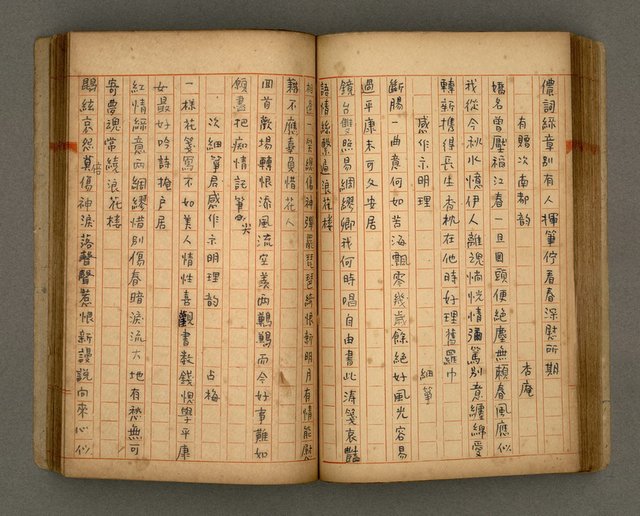 儂詞綠章別有人揮筆佇看春深慰所期
有賜次南都韵　杏庵
嬌名曾壓福江春一旦回頭便絕塵無賴春風應似
我從今秋水憶伊人離魂惝恍情彌篤別意纏綿愛
轉新携得長生香枕在他時好理舊羅巾
感作示明理　細筆
斷腸一曲意何如苦海飄零幾歲餘絕好風光容易
過平康未可久安居
鏡台雙照易綢繆卿我何時唱自由書此濤箋哀豔
語情絲繫遍浪花樓
一樣傷神彈琵琶琵琶終恨新明月有情能慰
藉不應辜負惜花人
回首歡場轉恨添風流空羨兩鶼鶼而今好事難如
願書把痴情託筆尖
次細筆君感作示明理韵　占梅
一樣花箋寫不如美人情性喜觀書數錢愧學平康
女最好吟詩掩戶居
紅情綠意兩綢繆惜別傷春暗淚流大地有愁無可
寄夢魂常繞浪花樓
鵾絃哀怨倍傷神淚落聲聲惹恨新謾說向來心似